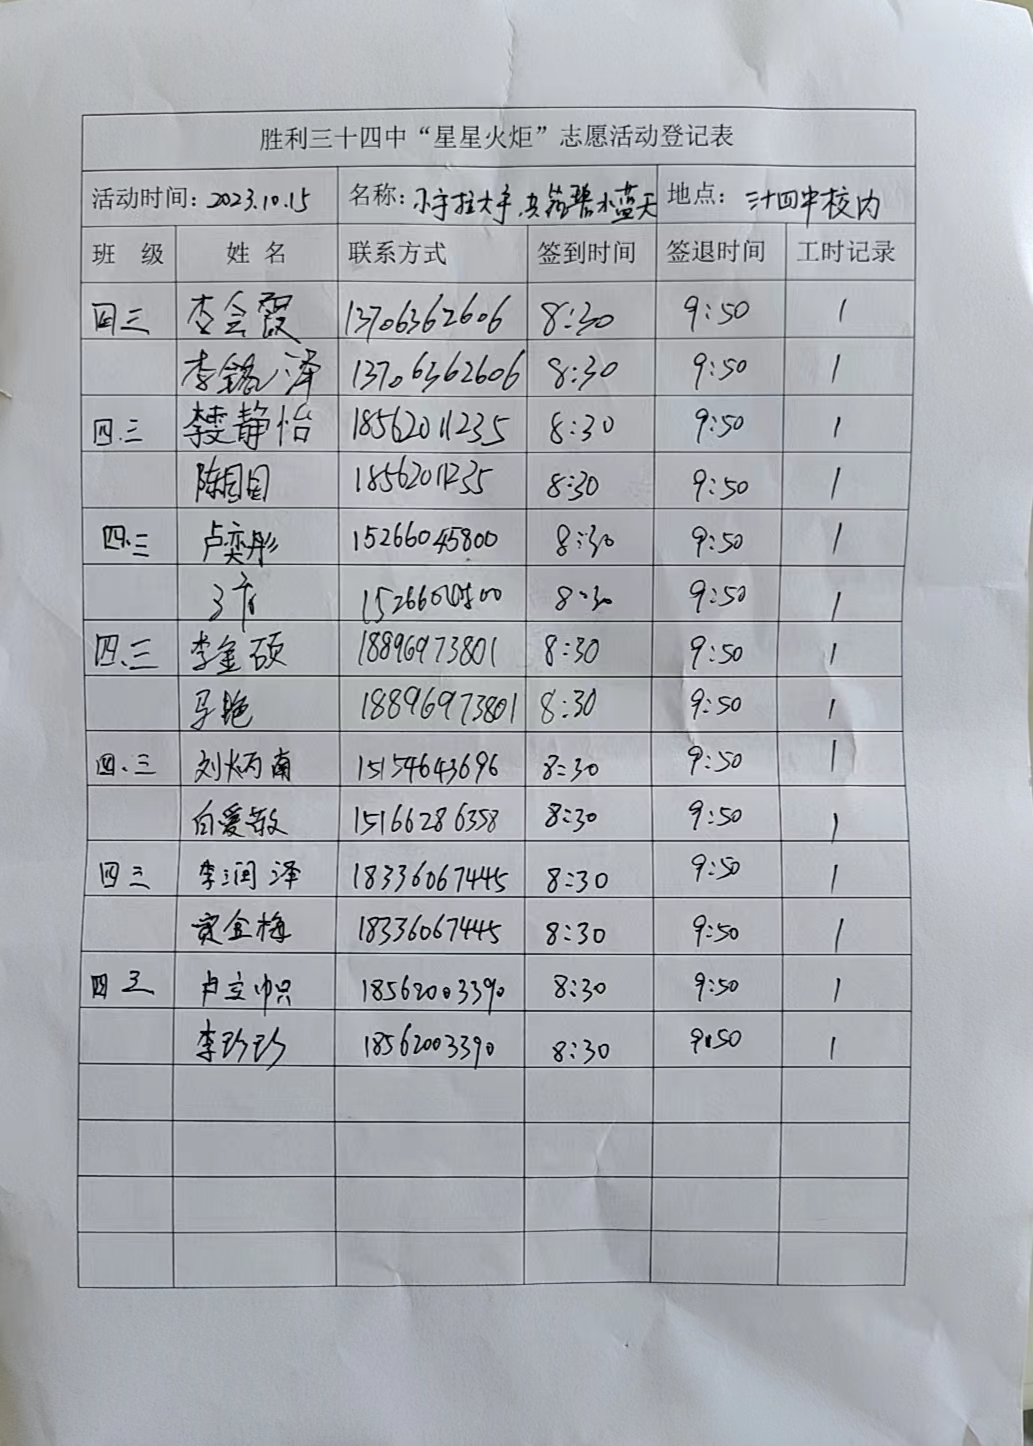 胜利三十四中“星星火炬”志愿活动登记表
活动时间：2023.10.15 名称：小手拉大手，共筑碧水蓝天 地点：三十四中校内
班 级 姓 名 联系方式 签到时间 签退时间 工时记录
四三 李会霞 13706362606 8:30 9:50 1
李铭泽 13706362606 8:30 9:50 1
四.三 李雯静怡 18562011235 8:30 9:50 1
陈园园 18562011235 8:30 9:50 1
四.三 卢奕彤 15266045800 8:30 9:50 1
8:30 9:50 1
四.三 李金硕 18896973801 8:30 9:50 1
马艳 18896973801 8:30 9:50 1
四.三 刘炳南 15154643696 8:30 9:50 1
白爱敏 15166286358 8:30 9:50 1
四三 李润泽 18336067445 8:30 9:50 1
黄金梅 18336067445 8:30 9:50 1
四三 卢立帜 18562003390 8:30 9:50 1
李珍珍 18562003390 8:30 9:50 1